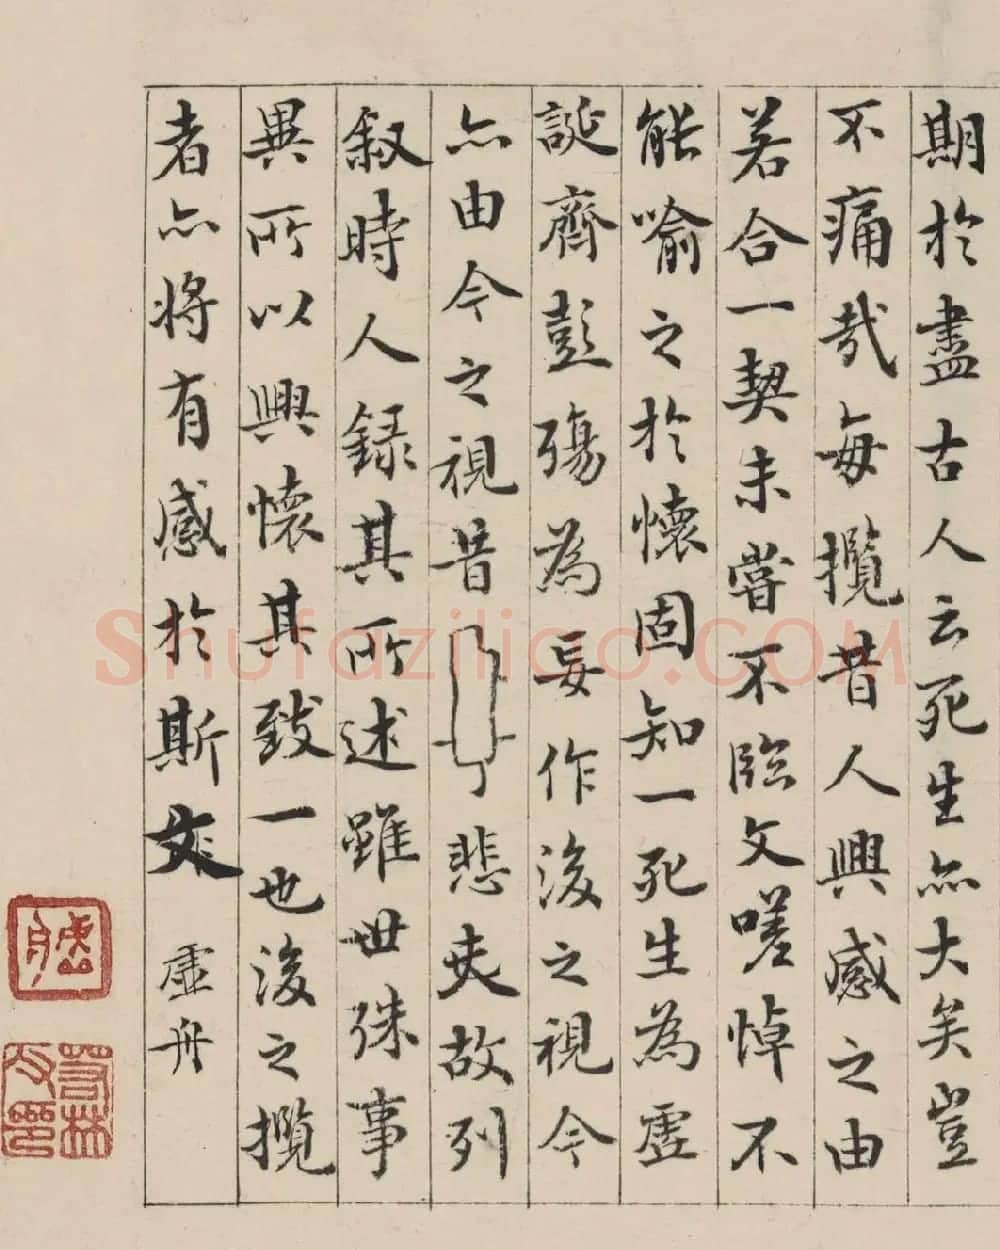 期於盡古人云死生亦大矣豈
不痛哉每攬昔人興感之由
若合一契未嘗不臨文嗟悼不
能喻之於懷固知一死生為虛
誕齊彭殤為妄作後之視今
亦由今之視昔悲夫故列
敘時人錄其所述雖世殊事
異所以興懷其致一也後之攬
者亦將有感於斯文
虛舟
Shufaziliao.COM